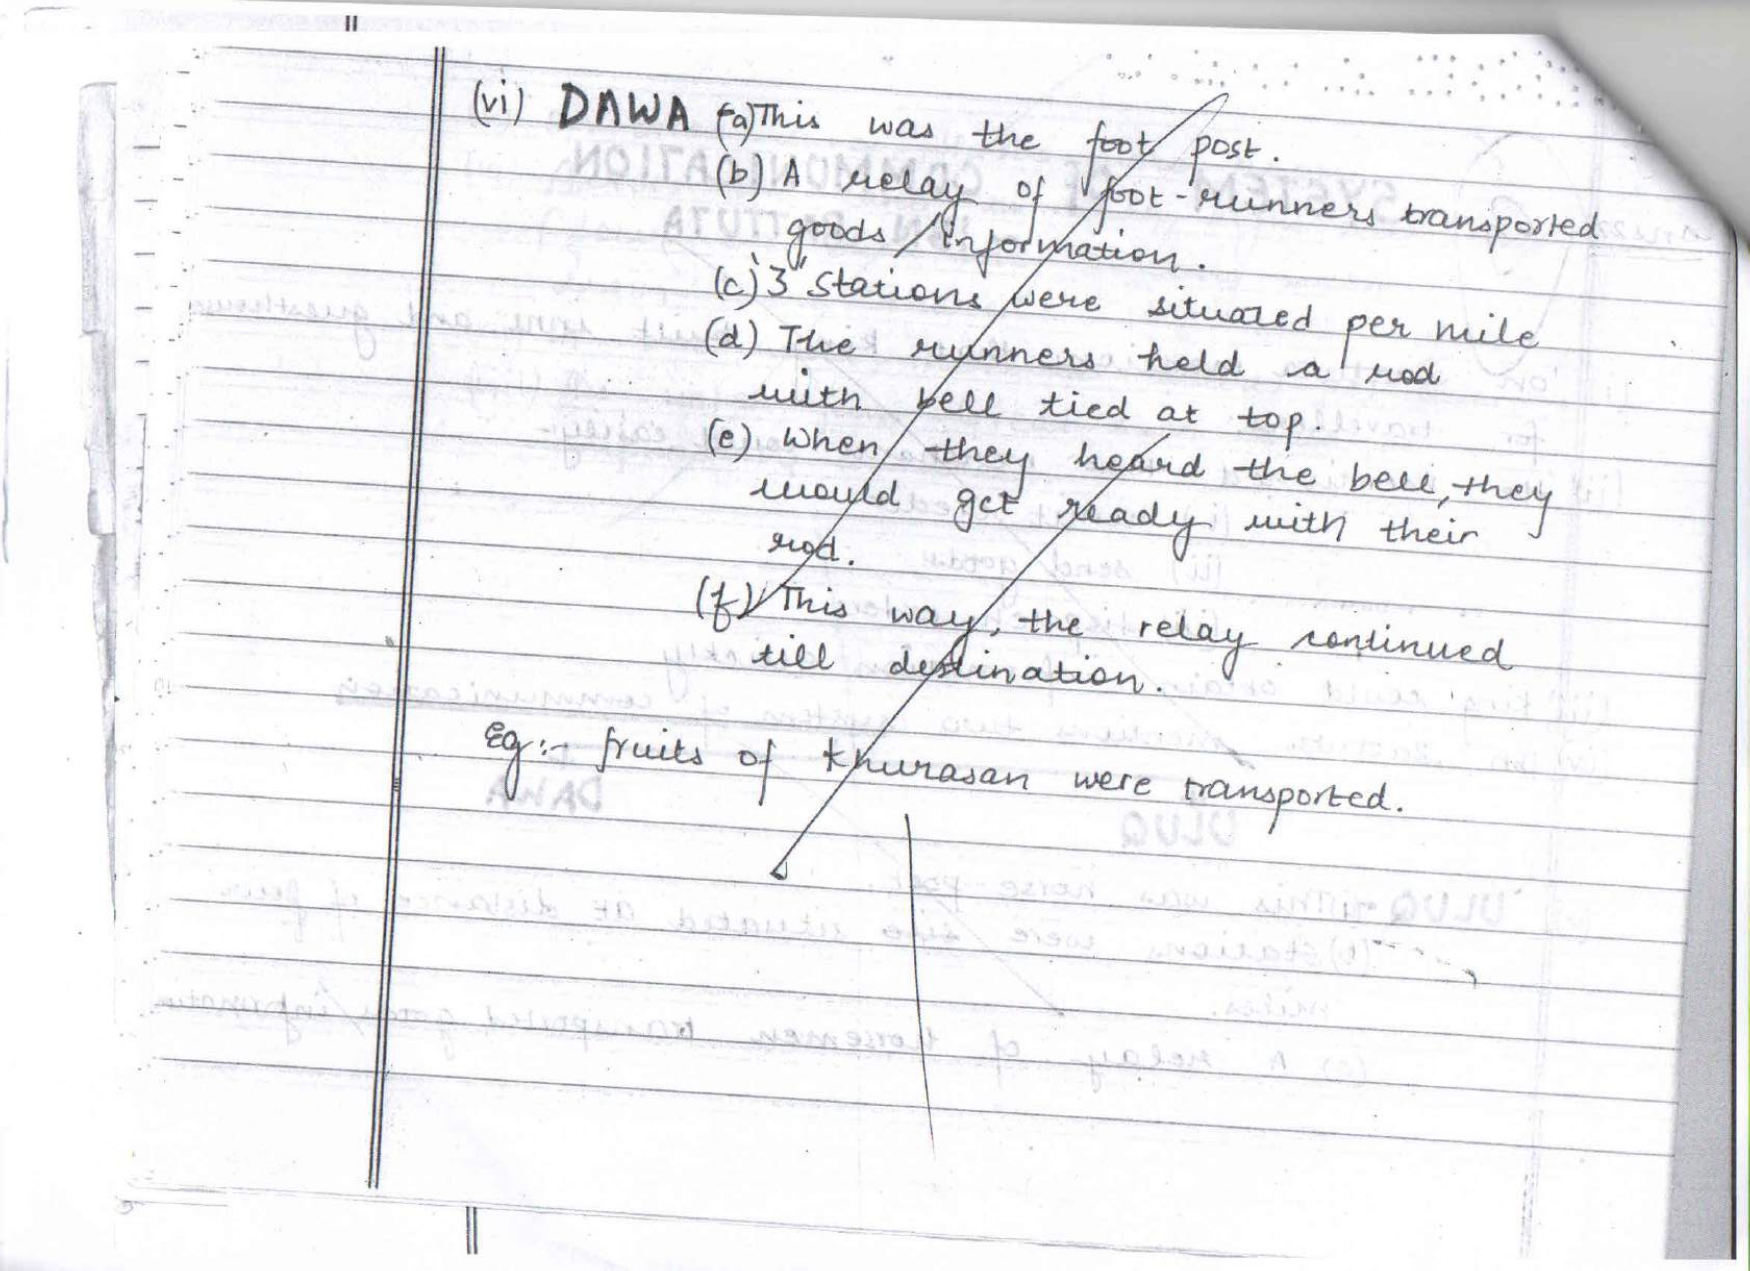 (vi) DAWA (a) This was the foot post.
(b) A relay of foot-runners transported
goods / information.
(c) 3 stations were situated per mile
(d) The runners held a rod
with bell tied at top.
(e) When they heard the bell, they
would get ready with their
rod.
(f) This way, the relay continued
till destination.
Eg:- fruits of Khurasan were transported.